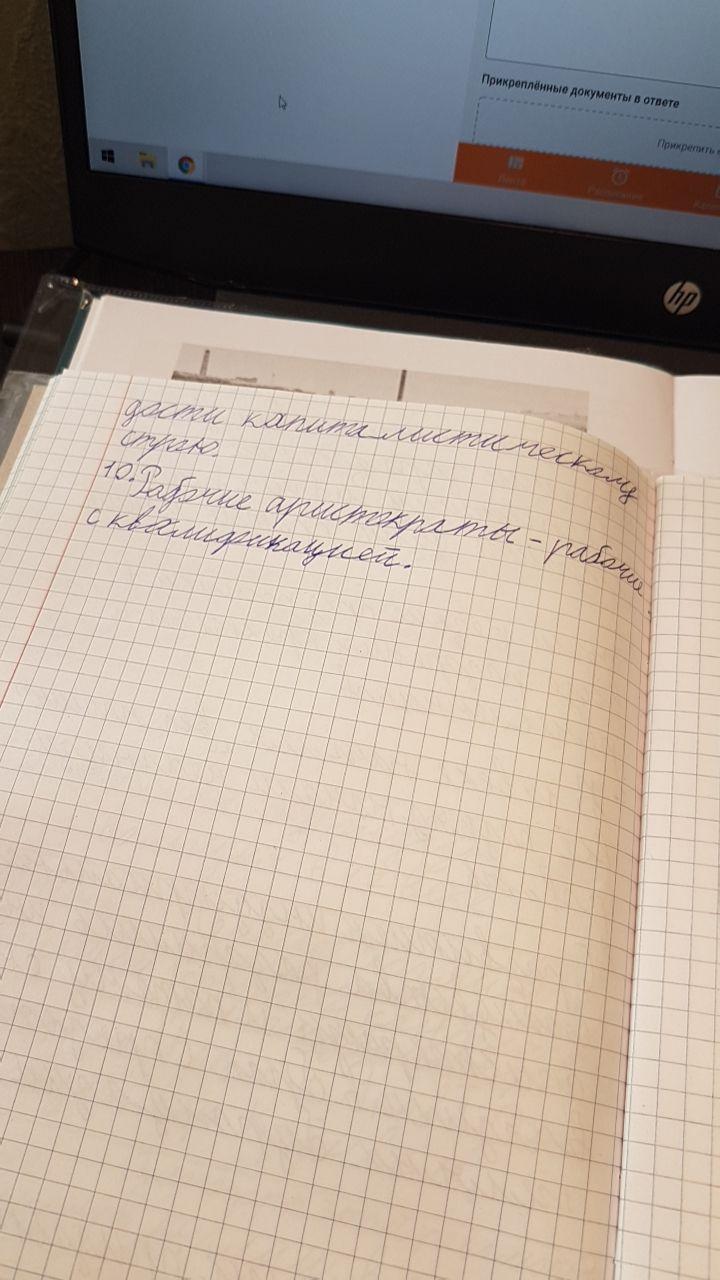 Прикреплённые документы в ответе
Прикрепить
Лента
Расписание
hp
дости капиталистическому
строю.
10. Рабочие аристократы - рабочие
с квалификацией.